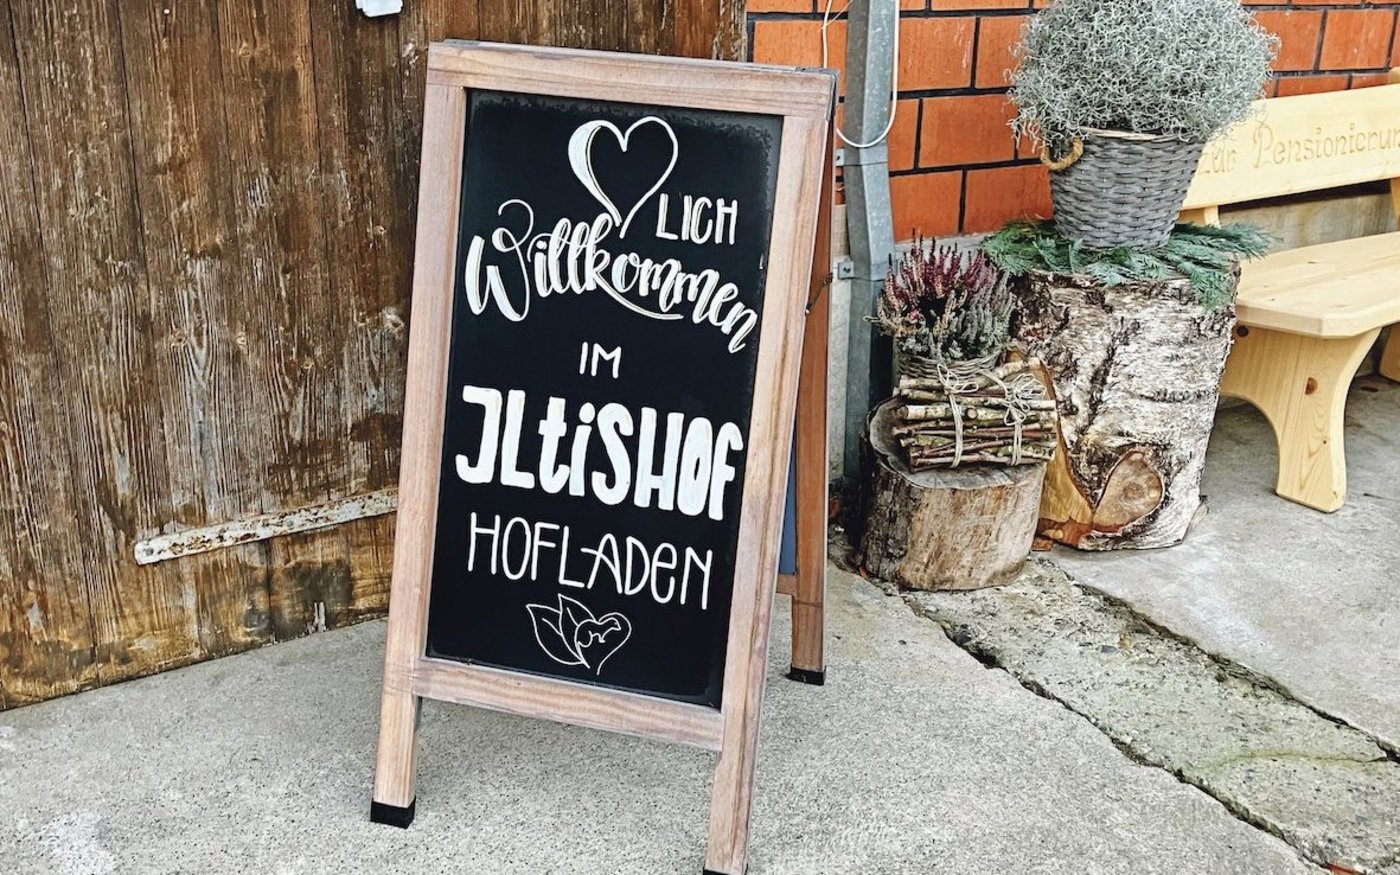 LICH
Willkommen
IM
ILtiSHOF
HOFLADEN
Zur Pensionierun